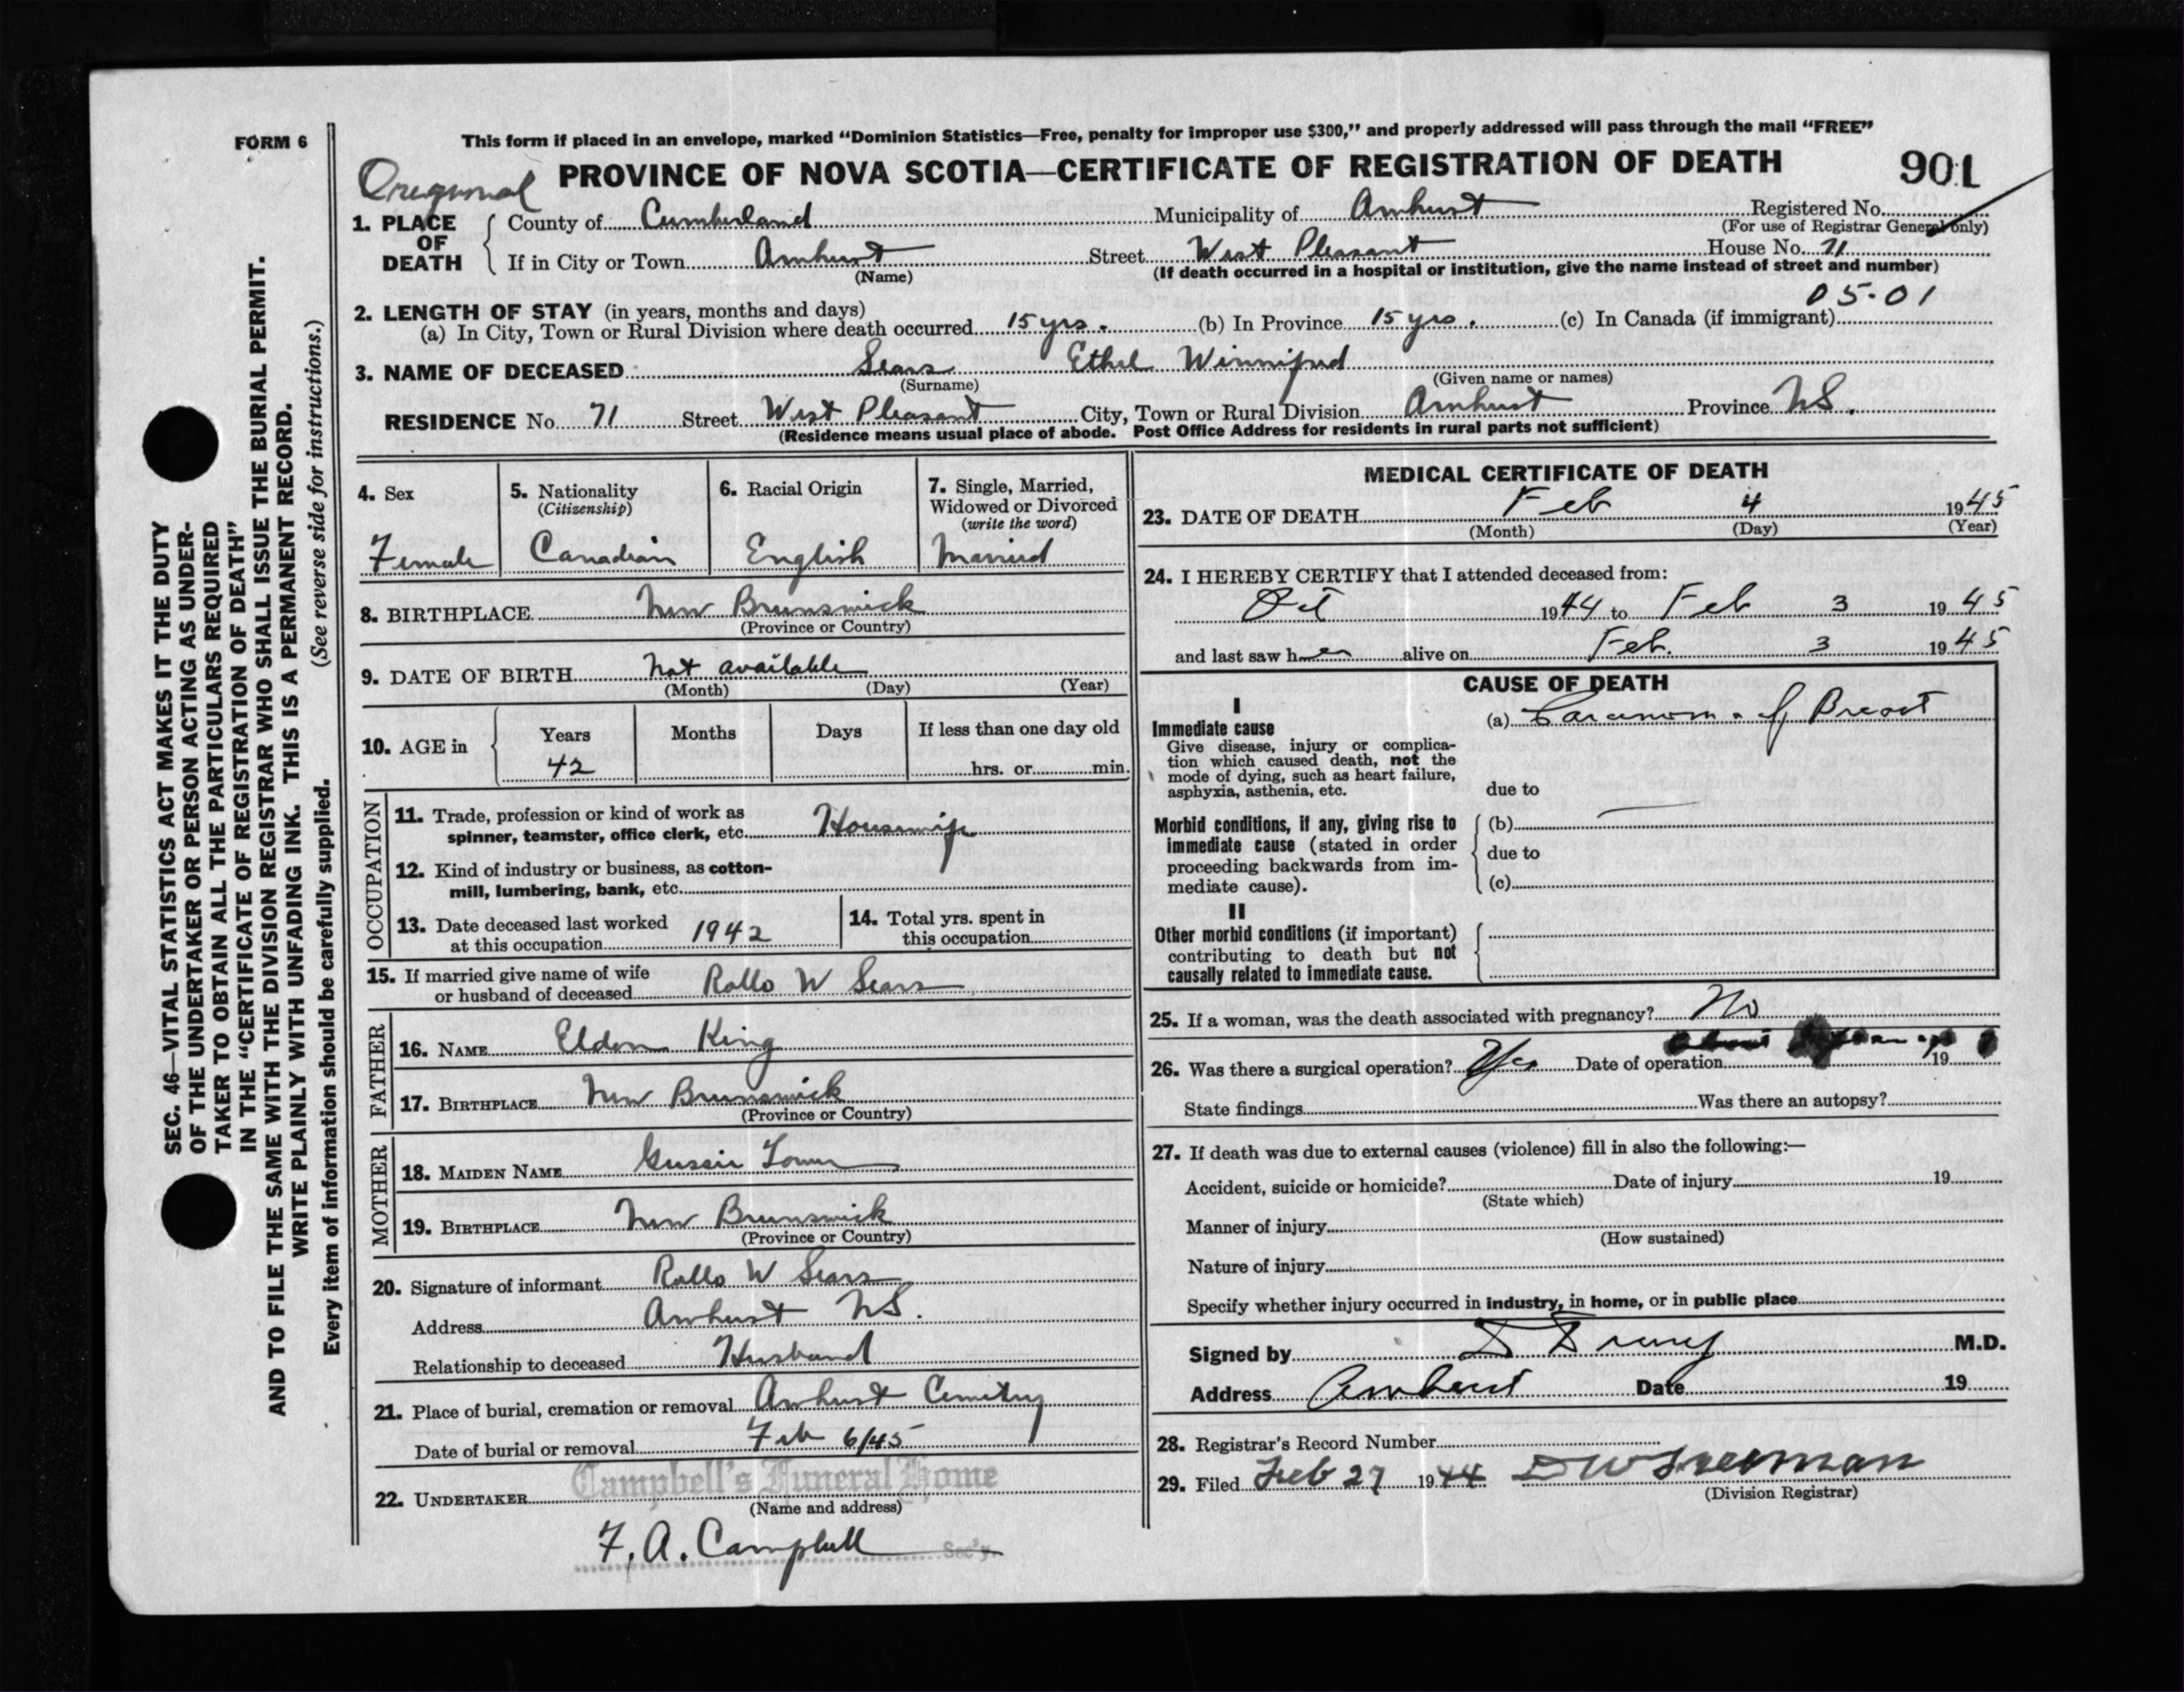 FORM 6
This form if placed in an envelope, marked “Dominion Statistics—Free, penalty for improper use $300,” and properly addressed will pass through the mail “FREE”
Oreginal PROVINCE OF NOVA SCOTIA—CERTIFICATE OF REGISTRATION OF DEATH 901
1. PLACE OF DEATH County of Cumberland Municipality of Amherst Registered No.
(For use of Registrar General only)
If in City or Town Amherst Street West Pleasant House No. 71
(Name) (If death occurred in a hospital or institution, give the name instead of street and number)
05.01
2. LENGTH OF STAY (in years, months and days)
(a) In City, Town or Rural Division where death occurred 15 yrs. (b) In Province 15 yrs. (c) In Canada (if immigrant)
3. NAME OF DECEASED Sears Ethel Winnifred
(Surname) (Given name or names)
RESIDENCE No. 71 Street West Pleasant City, Town or Rural Division Amherst Province NS.
(Residence means usual place of abode. Post Office Address for residents in rural parts not sufficient)
4. Sex
Female
5. Nationality
(Citizenship)
Canadian
6. Racial Origin
English
7. Single, Married,
Widowed or Divorced
(write the word)
Married
8. BIRTHPLACE New Brunswick
(Province or Country)
9. DATE OF BIRTH Not available
(Month) (Day) (Year)
10. AGE in Years Months Days If less than one day old
42 hrs. or min.
OCCUPATION
11. Trade, profession or kind of work as
spinner, teamster, office clerk, etc. Housewife
12. Kind of industry or business, as cotton-
mill, lumbering, bank, etc.
13. Date deceased last worked
at this occupation 1942
14. Total yrs. spent in
this occupation
15. If married give name of wife
or husband of deceased Rollo W Sears
FATHER
16. NAME Eldon King
17. BIRTHPLACE New Brunswick
(Province or Country)
MOTHER
18. MAIDEN NAME Gussie Tower
19. BIRTHPLACE New Brunswick
(Province or Country)
20. Signature of informant Rollo W Sears
Address Amherst NS.
Relationship to deceased Husband
21. Place of burial, cremation or removal Amherst Cemetry
Date of burial or removal Feb 6/45
22. UNDERTAKER Campbell's Funeral Home
(Name and address)
F. A. Campbell Sec'y.
MEDICAL CERTIFICATE OF DEATH
23. DATE OF DEATH Feb 4 1945
(Month) (Day) (Year)
24. I HEREBY CERTIFY that I attended deceased from:
Oct 1944 to Feb 3 1945
and last saw her alive on Feb. 3 1945
CAUSE OF DEATH
I
Immediate cause
Give disease, injury or complica-
tion which caused death, not the
mode of dying, such as heart failure,
asphyxia, asthenia, etc.
(a) Carcinoma of Breast
due to
Morbid conditions, if any, giving rise to
immediate cause (stated in order
proceeding backwards from im-
mediate cause).
(b)
due to
(c)
II
Other morbid conditions (if important)
contributing to death but not
causally related to immediate cause.
25. If a woman, was the death associated with pregnancy? No
26. Was there a surgical operation? Yes Date of operation 19
State findings Was there an autopsy?
27. If death was due to external causes (violence) fill in also the following:—
Accident, suicide or homicide? Date of injury 19
(State which)
Manner of injury
(How sustained)
Nature of injury
Specify whether injury occurred in industry, in home, or in public place
Signed by M.D.
Address Amherst Date 19
28. Registrar's Record Number
29. Filed Feb 27 1944
(Division Registrar)
SEC. 46—VITAL STATISTICS ACT MAKES IT THE DUTY
OF THE UNDERTAKER OR PERSON ACTING AS UNDER-
TAKER TO OBTAIN ALL THE PARTICULARS REQUIRED
IN THE “CERTIFICATE OF REGISTRATION OF DEATH”
AND TO FILE THE SAME WITH THE DIVISION REGISTRAR WHO SHALL ISSUE THE BURIAL PERMIT.
WRITE PLAINLY WITH UNFADING INK. THIS IS A PERMANENT RECORD.
Every item of information should be carefully supplied. (See reverse side for instructions.)